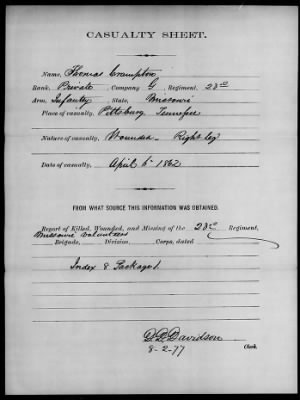 CASUALTY SHEET.
Name, Thomas Crumpton
Rank, Private Company G Regiment, 23rd
Arm, Infantry State, Missouri
Place of casualty, Pittsburg Tennessee
Nature of casualty, Wounded – Right leg
Date of casualty, April 6 1862
FROM WHAT SOURCE THIS INFORMATION WAS OBTAINED.
Report of Killed, Wounded, and Missing of the 23rd Regiment,
Missouri Volunteers
Brigade, Division, Corps, dated
Index 8 Package 1.
Davidson
8-2-77 Clerk.